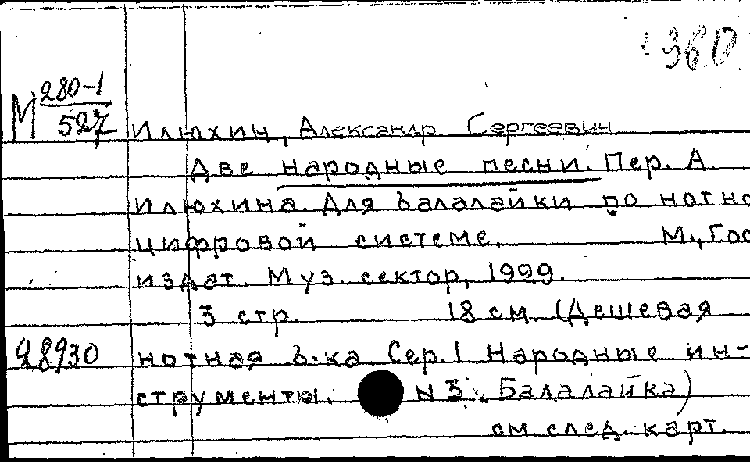 360
М 280-1
527
Илюхин, Александр Сергеевич
Две народные песни. Пер. А.
Илюхина для балалайки по нотно
цифровой системе. М., Гос
издат. Муз. сектор, 1929.
3 стр. 18 см. (Дешевая
28930 нотная б-ка Сер. I Народные ин-
струменты. N 3. Балалайка)
см след. карт.